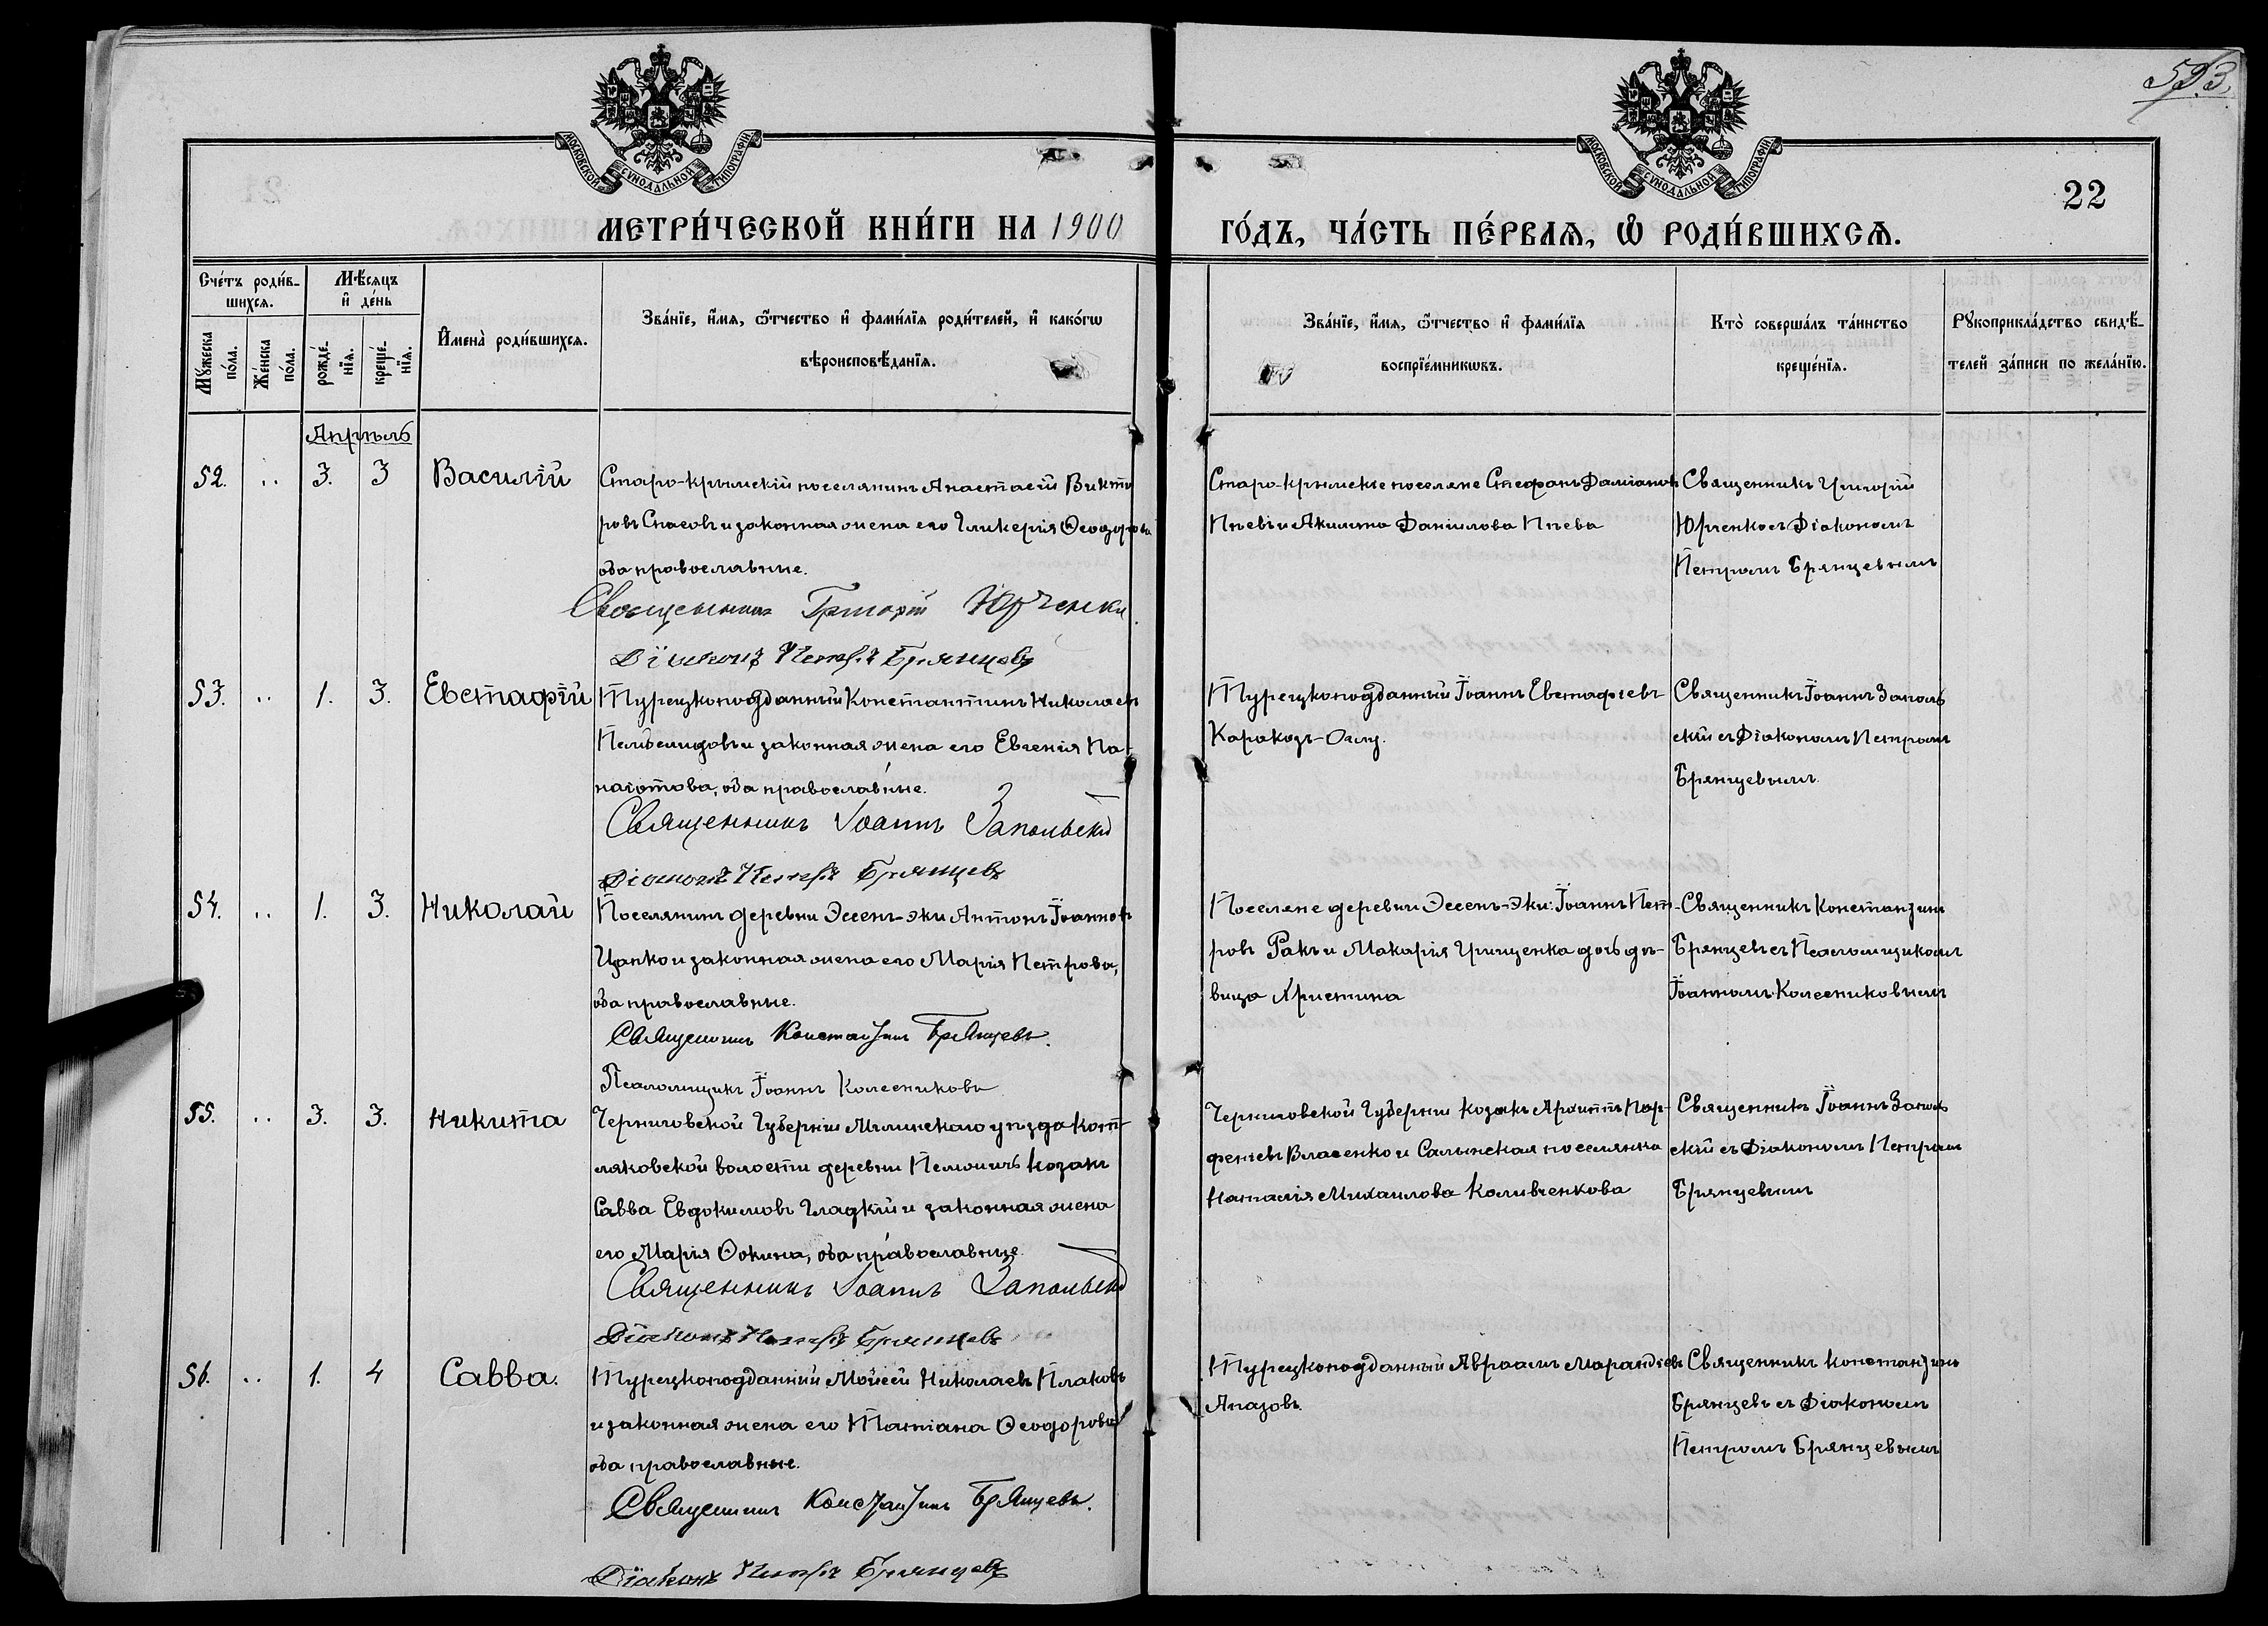 593.
МОСКОВСКОЙ СУНОДАЛЬНОЙ ТИПОГРАФІИ
МОСКОВСКОЙ СУНОДАЛЬНОЙ ТИПОГРАФІИ
22
МЕТРИ́ЧЕСКОЙ КНИ́ГИ НА 1900
ГО́ДЪ, ЧА́СТЬ ПЕ́РВАѦ, Ѡ РОДИ́ВШИХСѦ.
Сче́тъ роди́в-
шихсѧ.
Мѣ́сяцъ
и҆ де́нь
Мꙋ́жеска
по́ла.
Же́нска
по́ла.
рожде́-
нїѧ.
креще́-
нїѧ.
И҆мена̀ роди́вшихсѧ.
Зва́нїе, и҆́мѧ, ѻ҆́тчество и҆ фами́лїѧ роди́телей, и҆ како́гѡ
вѣроисповѣ́данїѧ.
Зва́нїе, и҆́мѧ, ѻ҆́тчество и҆ фами́лїѧ
воспрїе́мникѡвъ.
Кто̀ соверша́лъ та́инство
креще́нїѧ.
Рꙋкоприкла́дство свидѣ́-
телей за́писи по жела́нїю.
Апрѣль
52. .. 3. 3 Василій
Старо-Крымскій поселянинъ Анастасій Викто
ровъ Спасовъ и законная жена его Гликерія Ѳеодорова
оба православные.
Священникъ Григорій Юрченко
Діаконъ Петръ Брянцевъ
Старо-Крымскіе поселяне Стефанъ Даміановъ
Пчевъ и Акилина Даніилова Пчева
Священникъ Григорій
Юрченко съ Діакономъ
Петромъ Брянцевымъ
53. .. 1. 3. Евстафій
Турецкоподданный Константинъ Николаевъ
и законная жена его Евгенія Па-
наіотова, оба православные.
Священникъ Іоаннъ Запольскій
Діаконъ Петръ Брянцевъ
Турецкоподданный Іоаннъ Евстафіевъ
Каракозъ-Оглу.
Священникъ Іоаннъ Заполь
скій съ Діакономъ Петромъ
Брянцевымъ
54. .. 1. 3. Николай
Поселянинъ деревни Эссенъ-Эки Антонъ Іоанновъ
Цапко и законная жена его Марія Петрова,
оба православные.
Священникъ Константинъ Брянцевъ.
Псаломщикъ Іоаннъ Колесниковъ
Поселяне деревни Эссенъ-Эки: Іоаннъ Пет-
ровъ Ракъ и Макарія Грищенка дочь дѣ-
вица Христина
Священникъ Константинъ
Брянцевъ съ Псаломщикомъ
Іоанномъ Колесниковымъ
55. .. 3. 3. Никита
Черниговской Губерніи Мглинскаго уѣзда Кот-
ляковской волости деревни козакъ
Савва Евдокимовъ Гладкій и законная жена
его Марія Ѳокина, оба православные.
Священникъ Іоаннъ Запольскій
Діаконъ Петръ Брянцевъ
Черниговской Губерніи козакъ Архиппъ Пар-
феніевъ Власенко и Салынская поселянка
Наталія Михаилова Каливченкова
Священникъ Іоаннъ Заполь
скій съ Діакономъ Петромъ
Брянцевымъ
56. .. 1. 4 Савва.
Турецкоподданный Моисей Николаевъ Плаковъ
и законная жена его Татіана Ѳеодорова
оба православные.
Священникъ Константинъ Брянцевъ.
Діаконъ Петръ Брянцевъ
Турецкоподданный Авраамъ
Апазовъ.
Священникъ Константинъ
Брянцевъ съ Діакономъ
Петромъ Брянцевымъ